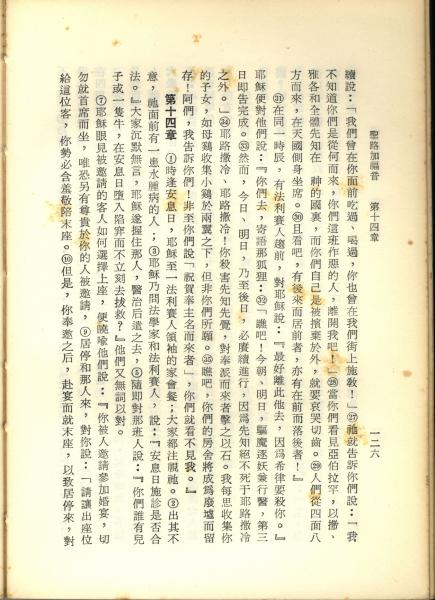 聖路加福音　第十四章　一二六
續說：「我們曾在你面前吃過、喝過，你也曾在我們街上施敎！」㉗祂就吿訴你們說：「我
不知道你們是從何而來，你們這班作惡的人，離開我吧！」㉘當你們看見亞伯拉罕，以撒、
雅各和全體先知在　神的國裏，而你們自己是被擯棄於外，就要哀哭切齒。㉙人們從四面八
方而來，在天國側身坐席。㉚且看吧，有後來而居前者，亦有在前而落後者！』
㉛在同一時辰，有法利賽人趨前，對耶穌說：『最好離此他去，因爲希律要殺你。』
耶穌便對他們說：『你們去，寄語那狐狸：㉜「瞧吧！今朝、明日，驅魔逐妖兼行醫，第三
日卽吿完成。㉝然而，今日、明日，乃至後日，必賡續進行，因爲先知絕不死于耶路撒冷
之外。」㉞耶路撒冷、耶路撒冷！你殺害先知先覺，對奉派而來者擊之以石。我每思收集你
的子女，如母鷄收集小鷄於兩翼之下，但非你們所願。㉟瞧吧，你們的房舍將成爲廢墟而留
存！阿們，我吿訴你們！非至你們說「祝賀奉主名而來者」，你們就看不見我。』
第十四章　①時逢安息日，耶穌至一法利賽人領袖的家會餐；大家都注視祂。②出其不
意，祂面前有一患水腫病的人，③耶穌乃問法學家和法利賽人，說：『安息日施診是否合
法。』大家沉默無言，耶穌遂握住那人，醫治后遣之去，⑤隨卽對那班人說：『你們誰有兒
子或一隻牛，在安息日墮入陷穽而不立刻去拔救？』他們又無詞以對。
⑦耶穌眼見被邀請的客人如何選擇上座，便曉喩他們說：『你被人邀請參加婚宴，切
勿就首席而坐，唯恐另有尊貴於你的人被邀請，⑨居停和那人來，對你說：「請讓出座位
給這位客，你勢必含羞敬陪末座。⑩但是，你奉邀之后，赴宴而就末座，以致居停來，對